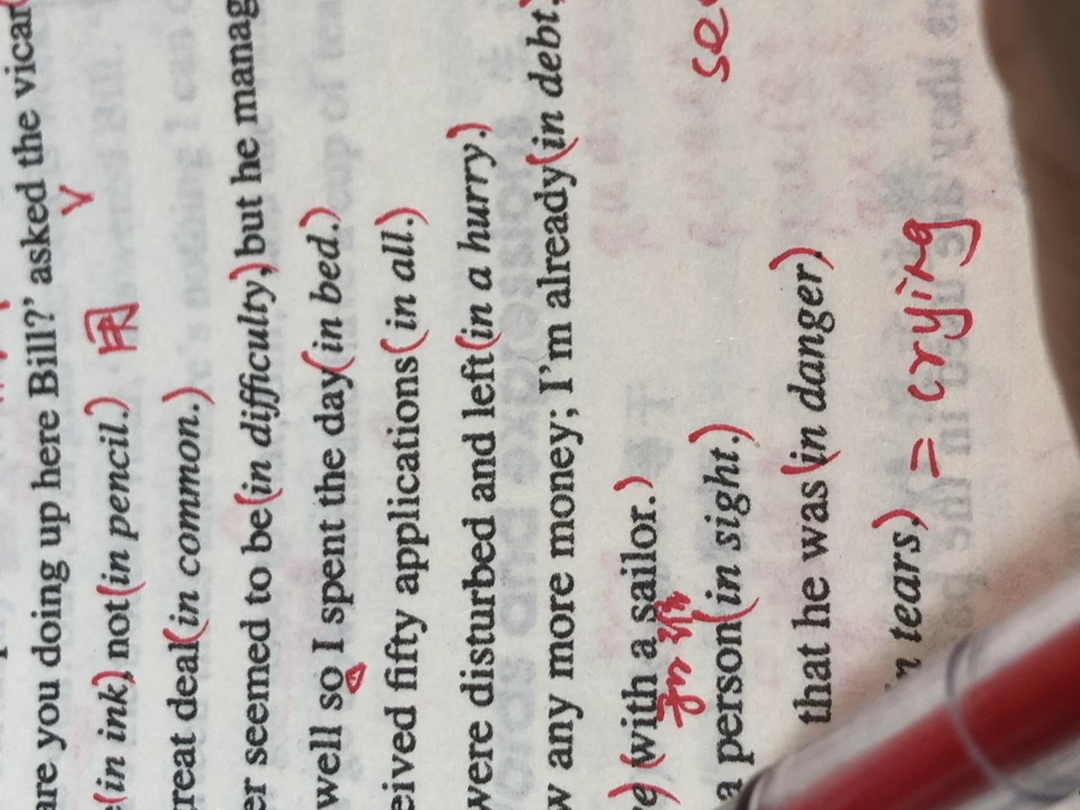 are you doing up here Bill?' asked the vicar
V
(in ink), not (in pencil.) 用
reat deal (in common.)
er seemed to be (in difficulty), but he manag
well so I spent the day (in bed.)
eived fifty applications (in all.)
were disturbed and left (in a hurry.)
w any more money; I'm already (in debt,
(with a sailor.)
a person (in sight.) se
that he was (in danger).
n tears). = crying